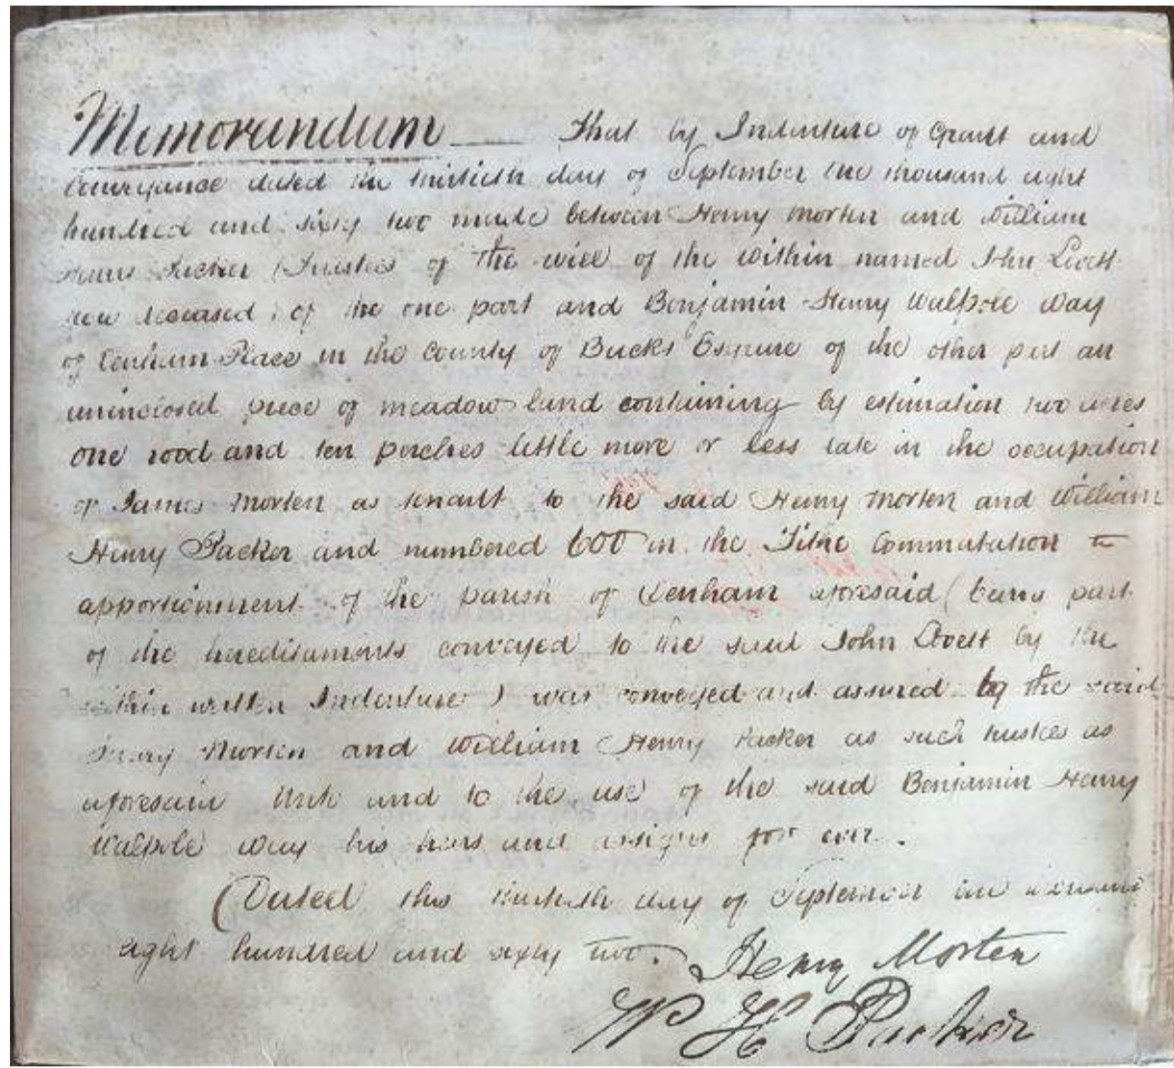 Memorandum That by Indenture of Grant and
Conveyance dated the thirtieth day of September one thousand eight
hundred and sixty two made between Henry Morten and William
Henry Packer (Trustees of the will of the within named John Lovett
now deceased) of the one part and Benjamin Henry Walpole Way
of Denham Place in the County of Bucks Esquire of the other part an
uninclosed piece of meadow land containing by estimation two acres
one rood and ten perches little more or less late in the occupation
of James Morten as tenant to the said Henry Morten and William
Henry Packer and numbered 600 in the Tithe Commutation
apportionment of the parish of Denham aforesaid (being part
of the hereditaments conveyed to the said John Lovett by the
within written Indenture) was conveyed and assured by the said
Henry Morten and William Henry Packer as such trustees as
aforesaid Unto and to the use of the said Benjamin Henry
Walpole Way his heirs and assigns for ever.
Dated this thirtieth day of September one thousand
eight hundred and sixty two. Henry Morten
W H Packer